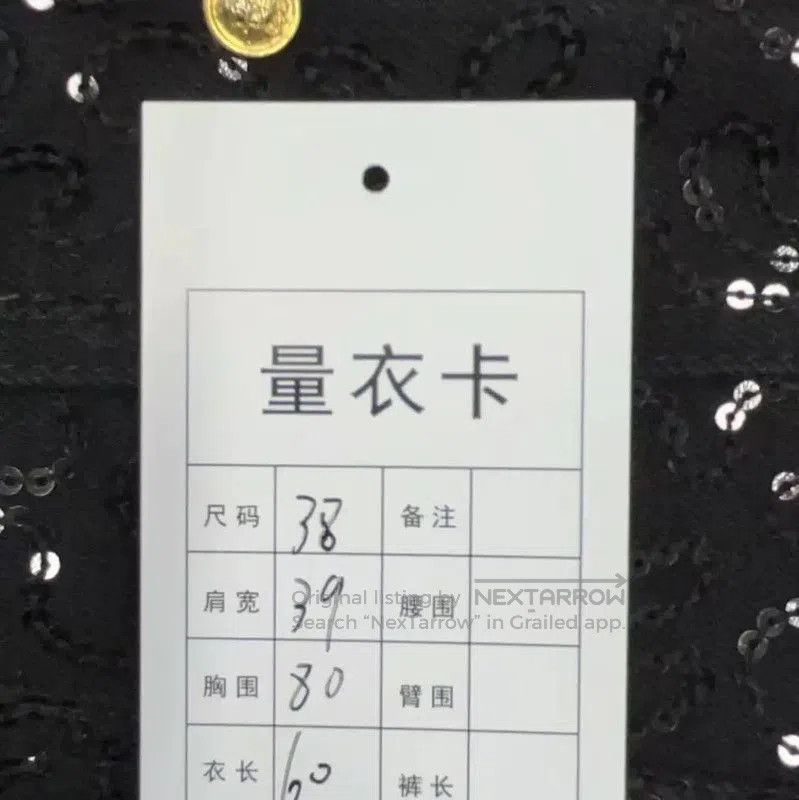 量衣卡
尺码 38 备注
肩宽 39 腰围
Original listing by NEXTARROW
Search “NexTarrow” in Grailed app.
胸围 80 臂围
衣长 60 裤长